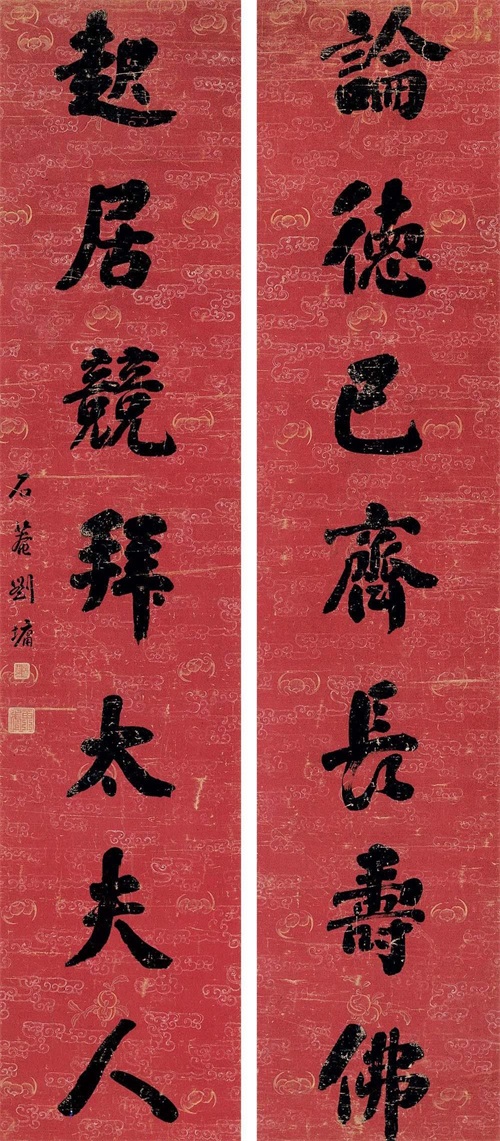 論德已齊長壽佛
起居競拜太夫人
石菴劉墉